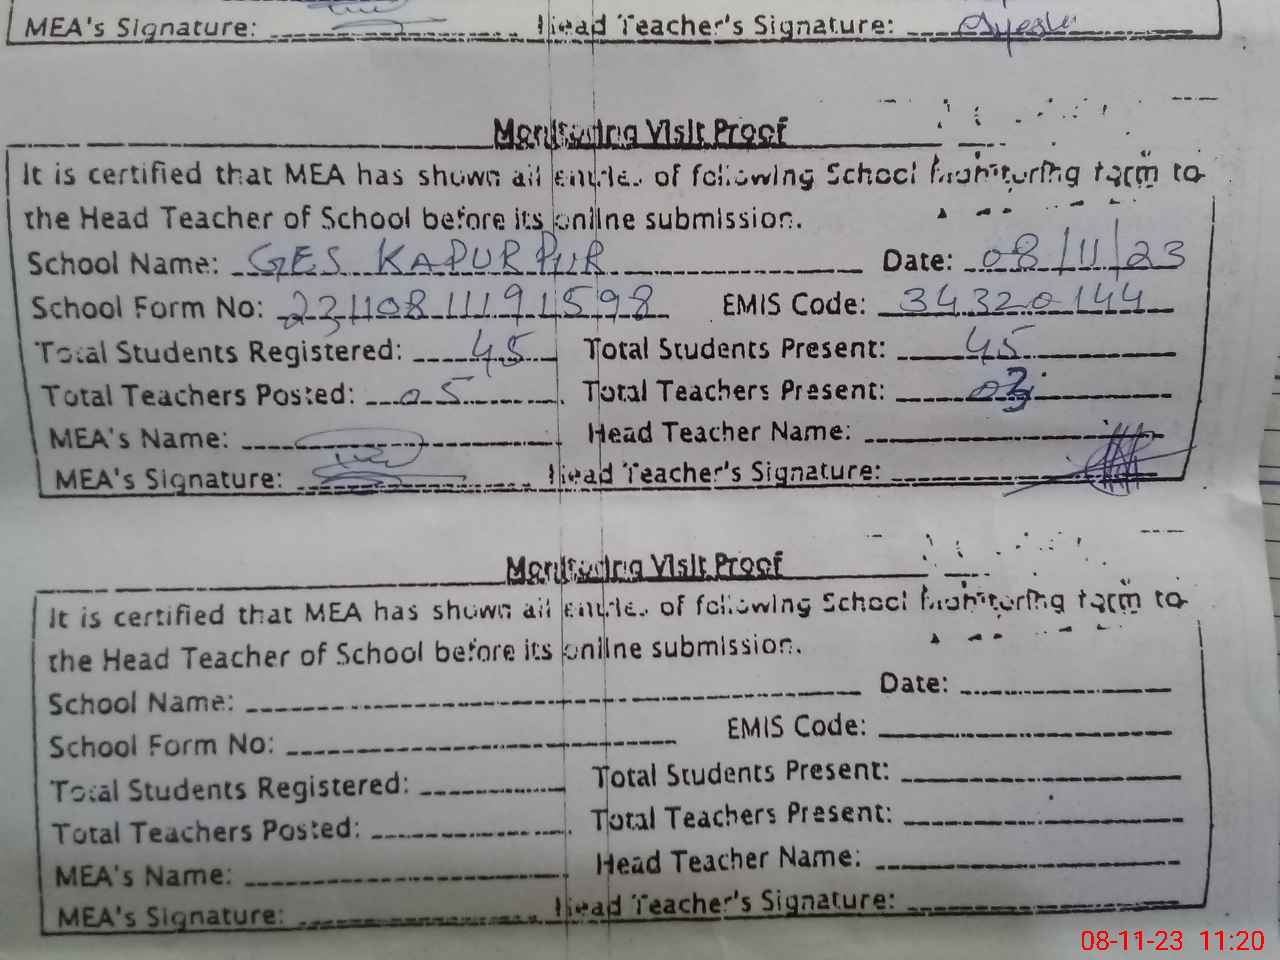 MEA's Signature: Head Teacher's Signature:
Monitoring Visit Proof
It is certified that MEA has shown all entries of following School Monitoring form to
the Head Teacher of School before its online submission.
School Name: GES KAPURPUR Date: 08/11/23
School Form No: EMIS Code: 34320144
Total Students Registered: 45 Total Students Present: 45
Total Teachers Posted: 05 Total Teachers Present:
MEA's Name: Head Teacher Name:
MEA's Signature: Head Teacher's Signature:
Monitoring Visit Proof
It is certified that MEA has shown all entries of following School Monitoring form to
the Head Teacher of School before its online submission.
School Name: Date:
School Form No: EMIS Code:
Total Students Registered: Total Students Present:
Total Teachers Posted: Total Teachers Present:
MEA's Name: Head Teacher Name:
MEA's Signature: Head Teacher's Signature:
08-11-23 11:20